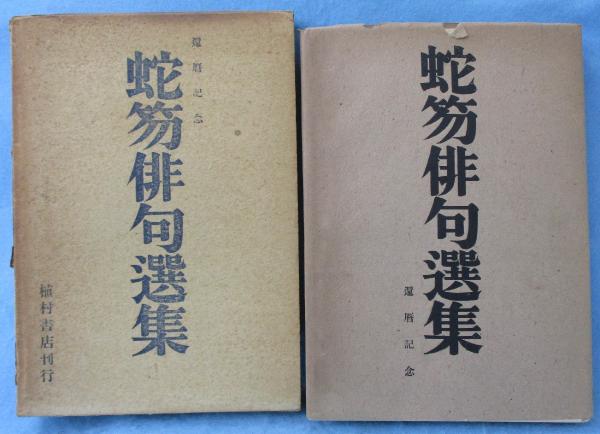 還暦記念
蛇笏俳句選集
植村書店刊行
蛇笏俳句選集
還暦記念